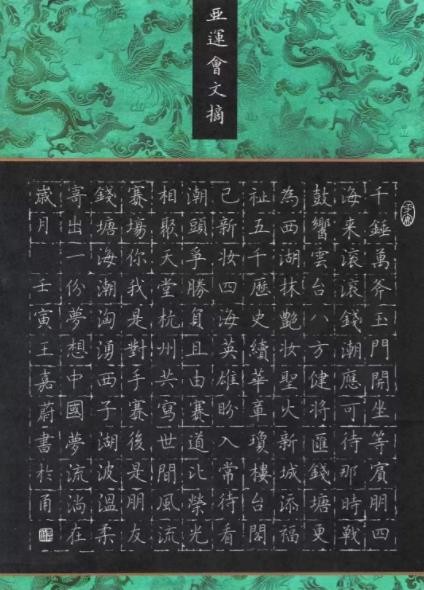 亚運會文摘
千錘萬斧玉門開坐等賓朋四
海来滾滾錢潮應可待那時戰
鼓響雲台八方健將匯錢塘更
為西湖抹艷妆聖火新城添福
祉五千歷史續華章瓊樓台閣
已新妆四海英雄盼入常待看
潮頭爭勝負且由賽道比榮光
相聚天堂杭州共寫世間風流
賽場你我是對手賽後是朋友
錢塘海潮洶湧西子湖波溫柔
寄出一份夢想中國夢流淌在
歲月 壬寅王嘉蔚書於甬